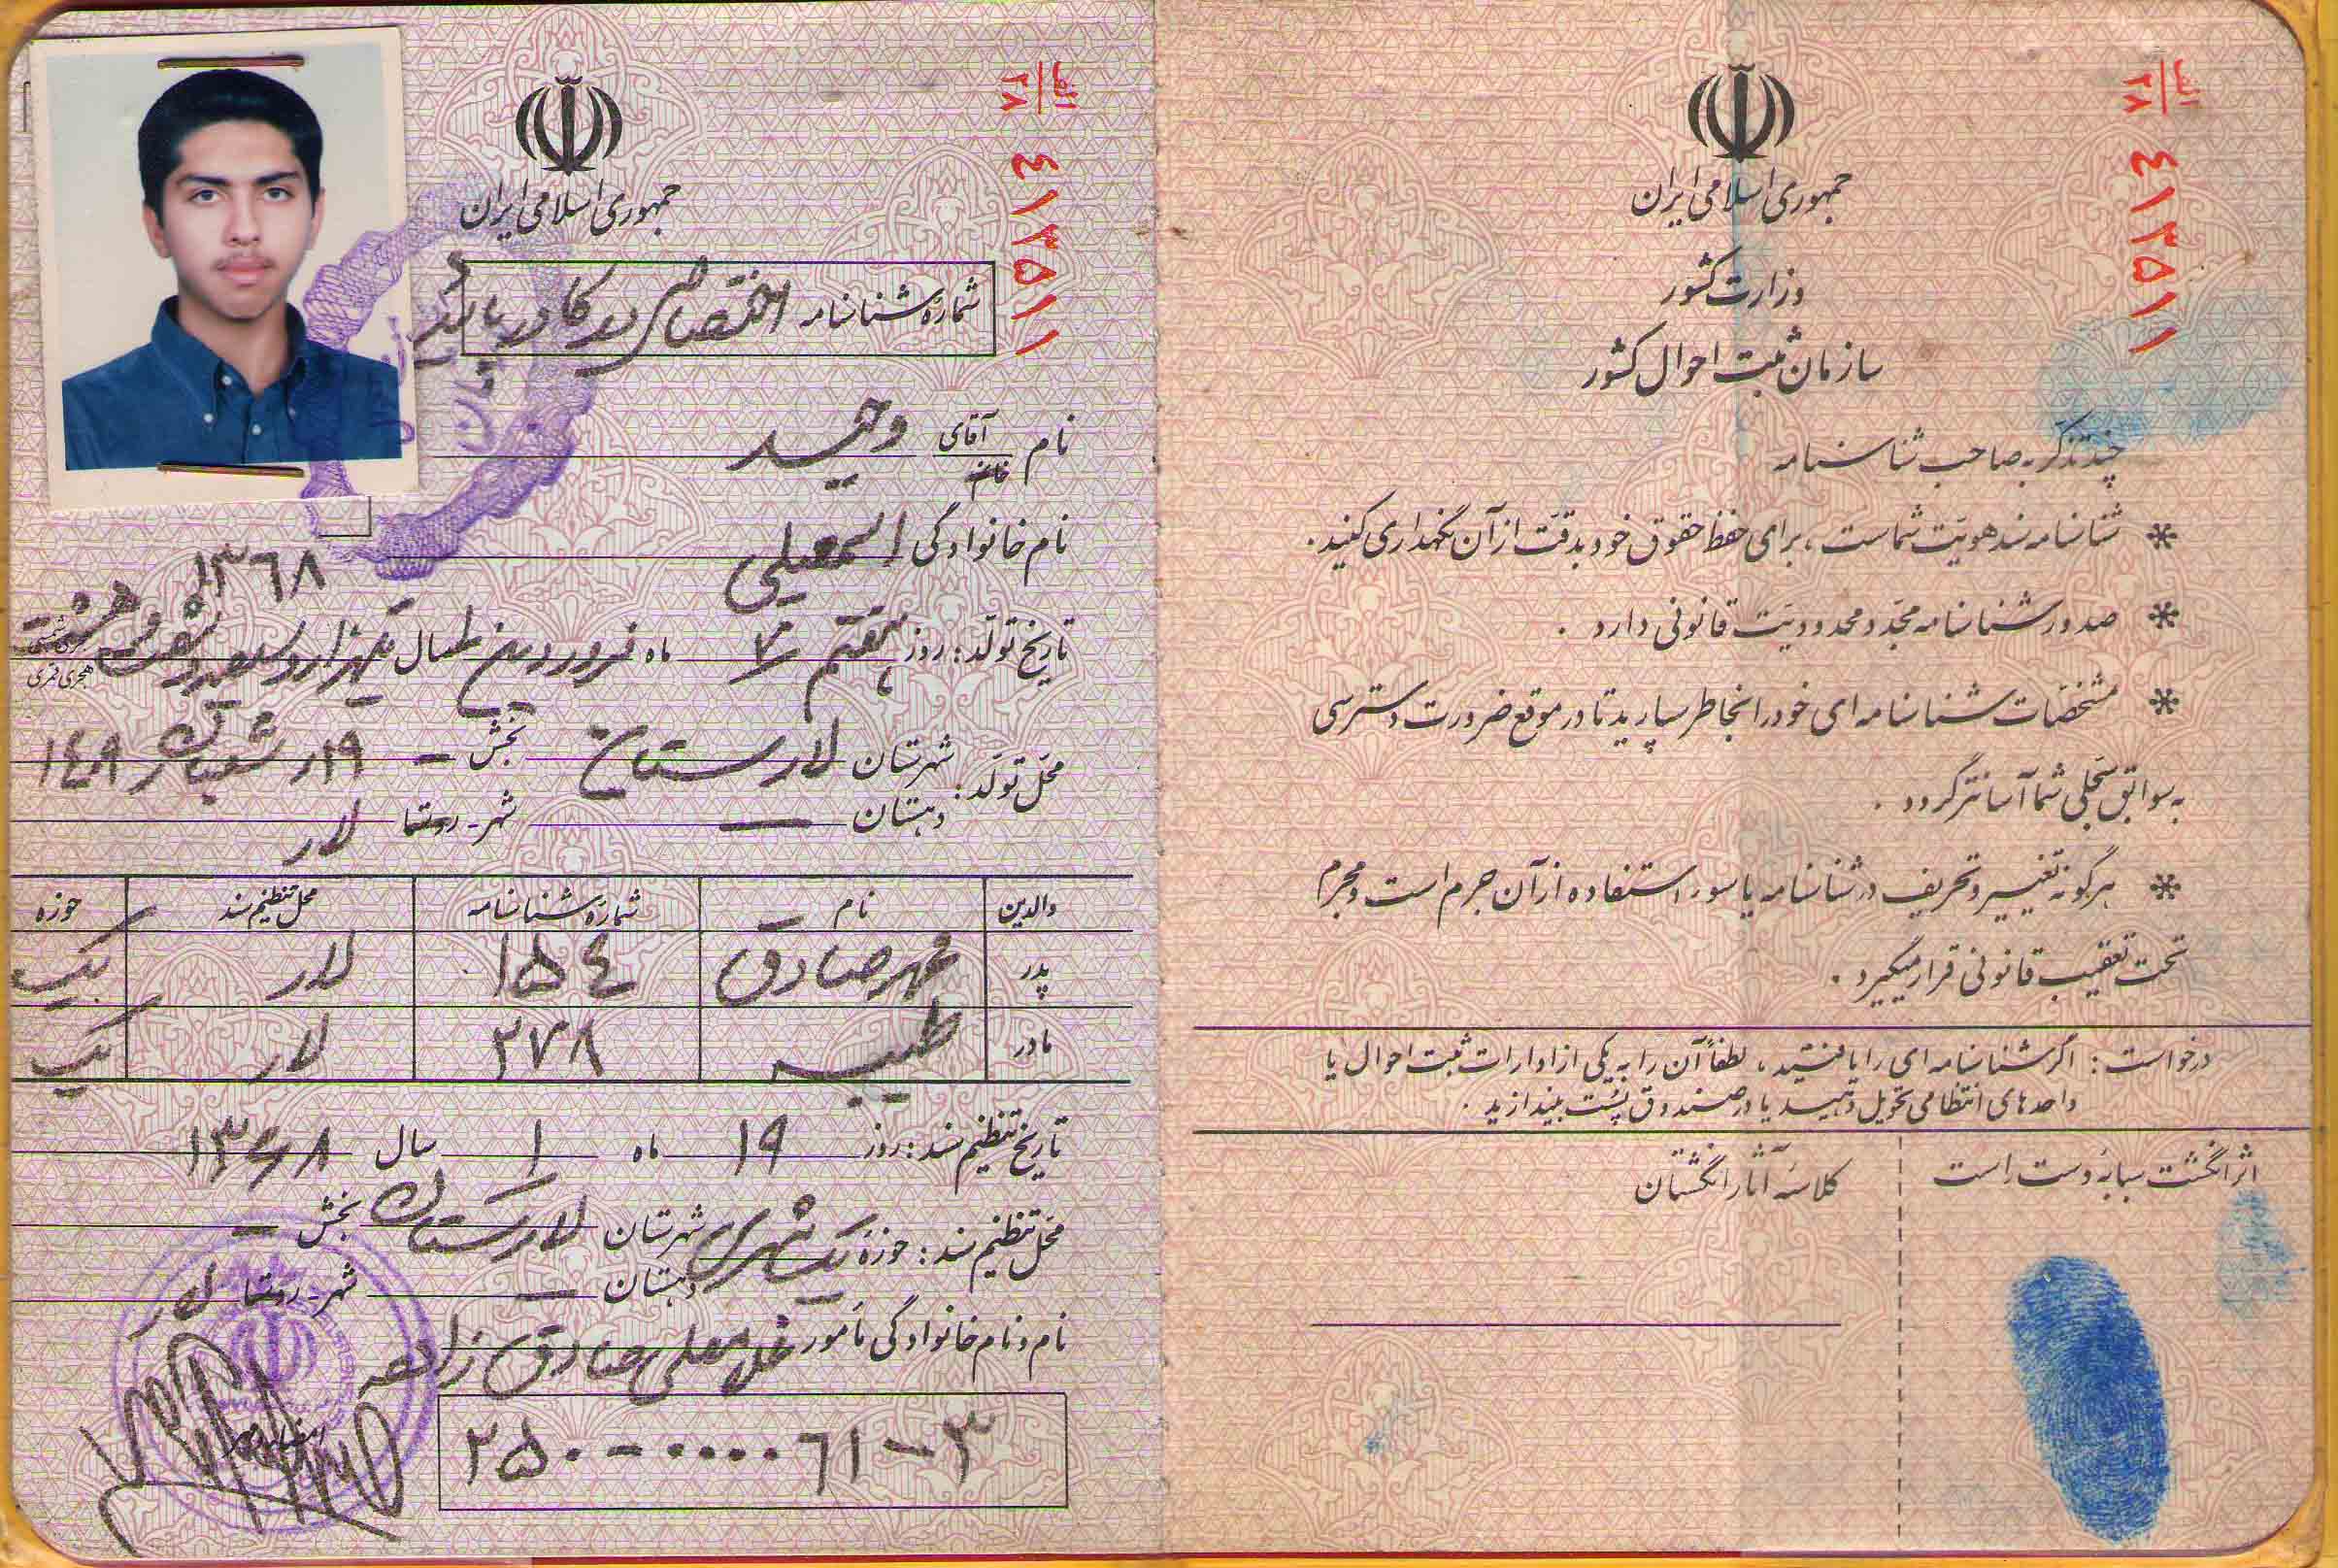 جمهوری اسلامی ایران
وزارت کشور
سازمان ثبت احوال کشور
الف
۲۸
۴۱۳۵۱۱
چند تذکر به صاحب شناسنامه
* شناسنامه سند هویت شماست ، برای حفظ حقوق خود بدقت از آن نگهداری کنید .
* صدور شناسنامه مجدد محدودیت قانونی دارد .
* مشخصات شناسنامه ای خود را بخاطر بسپارید تا در موقع ضرورت دسترسی
به سوابق سجلی شما آسانتر گردد .
* هرگونه تغییر و تحریف در شناسنامه یا سوء استفاده از آن جرم است و مجرم
تحت تعقیب قانونی قرار میگیرد .
درخواست : اگر شناسنامه ای را یافتید ، لطفاً آن را به یکی از ادارات ثبت احوال یا
واحدهای انتظامی تحویل دهید یا در صندوق پست بیندازید .
اثر انگشت سبابه دست راست
کلاسه آثار انگشتان
جمهوری اسلامی ایران
الف
۲۸
۴۱۳۵۱۱
شماره شناسنامه
نام آقای خانم وحید
نام خانوادگی اسمعیلی
۱۳۶۸
تاریخ تولد : روز هفتم ۷ ماه فروردین سال یکهزار و سیصد و شصت و هشت هجری شمسی هجری قمری
محل تولد : شهرستان لارستان بخش - ۱۹ شعبان ۱۴۰۹
دهستان — شهر - روستا لار
والدین نام شماره شناسنامه محل تنظیم سند حوزه
پدر محمد صادق ۱۵۴ لار یک
مادر طیبه ۲۷۸ لار یک
تاریخ تنظیم سند : روز ۱۹ ماه ۱ سال ۱۳۶۸
محل تنظیم سند : حوزه یک شهری شهرستان لارستان بخش -
دهستان — شهر - روستا لار
نام و نام خانوادگی مأمور غلامعلی صادق زاده
امضاء و مهر
۲۵۰-۰۰۰۰۶۱-۳